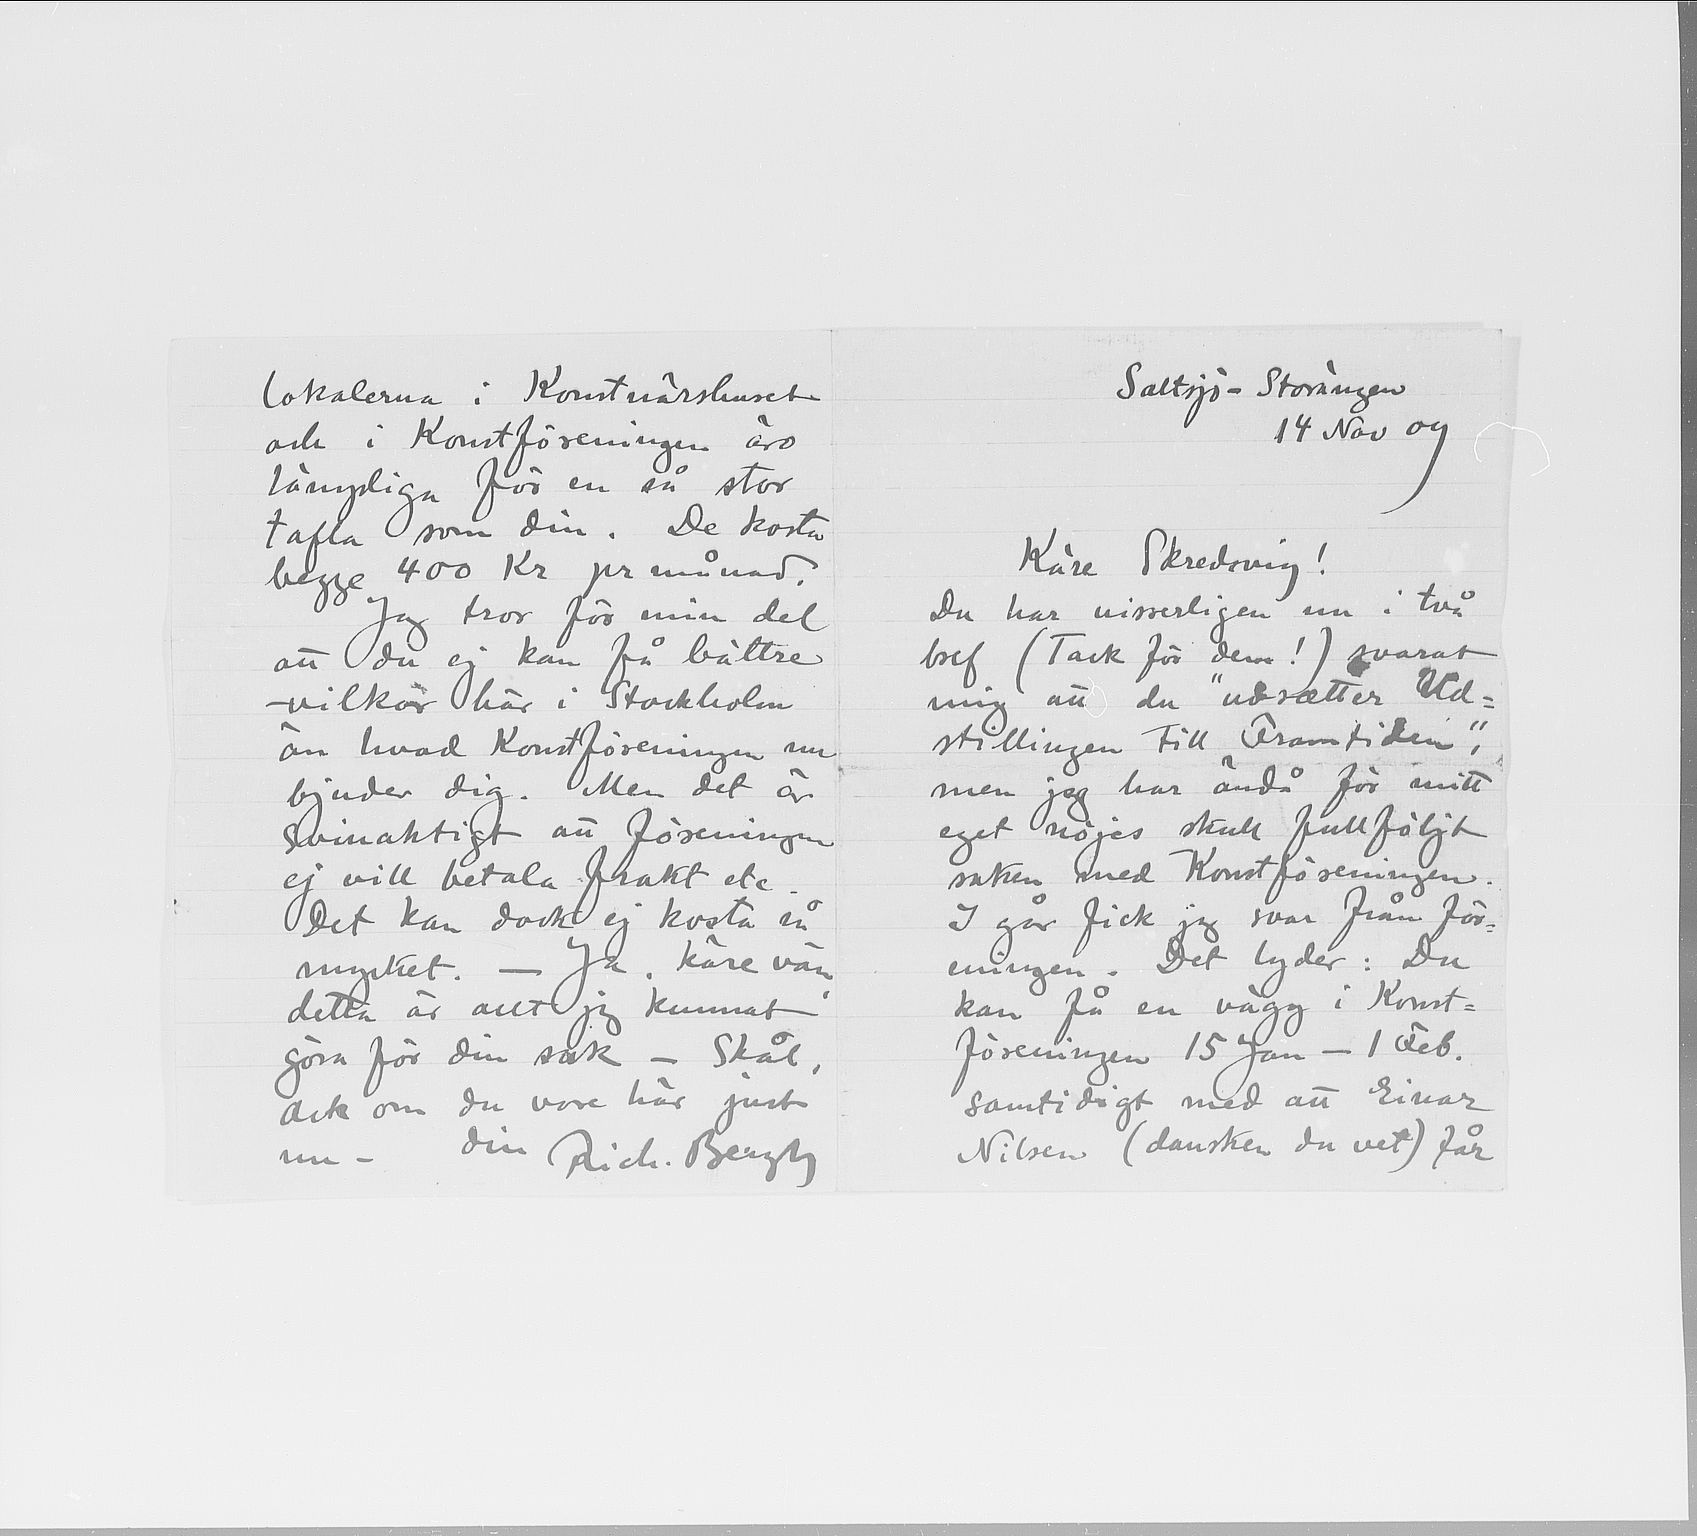 Saltsjö-Storängen
14 Nov 09
Käre Skredsvig!
Du har visserligen nu i två
bref (Tack för dem!) svarat
mig att du "udsætter Ud=
stillingen till Framtiden",
men jag har ändå för mitt
eget nöjes skull fullföljt
saken med Konstföreningen.
I går fick jag svar från för=
eningen. Det lyder: Du
kan få en vägg i Konst=
föreningen 15 Jan — 1 Feb.
samtidigt med att Einar
Nilsen (dansken du vet) får
lokalerna i Konstnärshuset
och i Konstföreningen äro
lämpliga för en så stor
tafla som din. De kosta
begge 400 Kr pr månad.
Jag tror för min del
att du ej kan få bättre
-vilkår här i Stockholm
än hvad Konstföreningen nu
bjuder dig. Men det är
svinaktigt att föreningen
ej vill betala frakt etc.
Det kan dock ej kosta så
mycket. — Ja, käre vän,
detta är allt jag kunnat
göra för din sak — Skål,
ack om du vore här just
nu — din Rich. Bergh